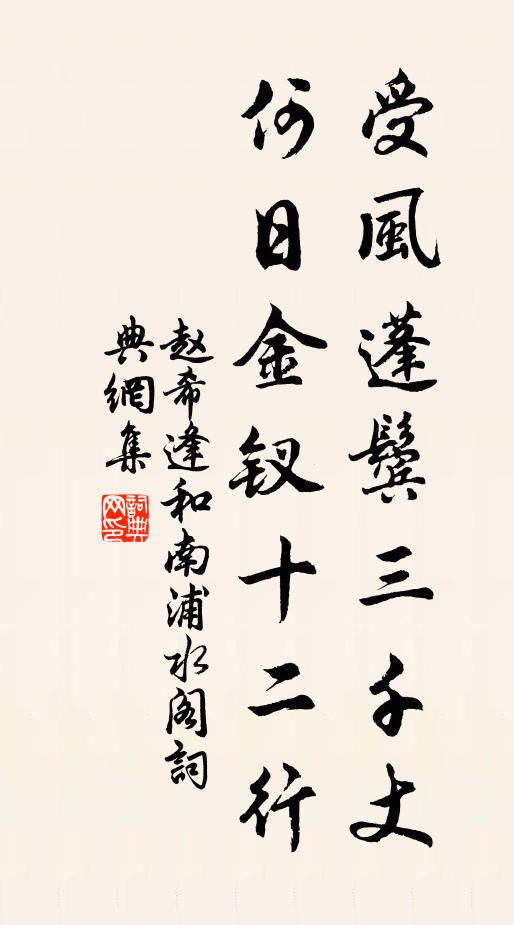 受風蓬鬢三千丈
何日金钗十二行
赵希逢和南浦水阁詞
典網集
詞典网印